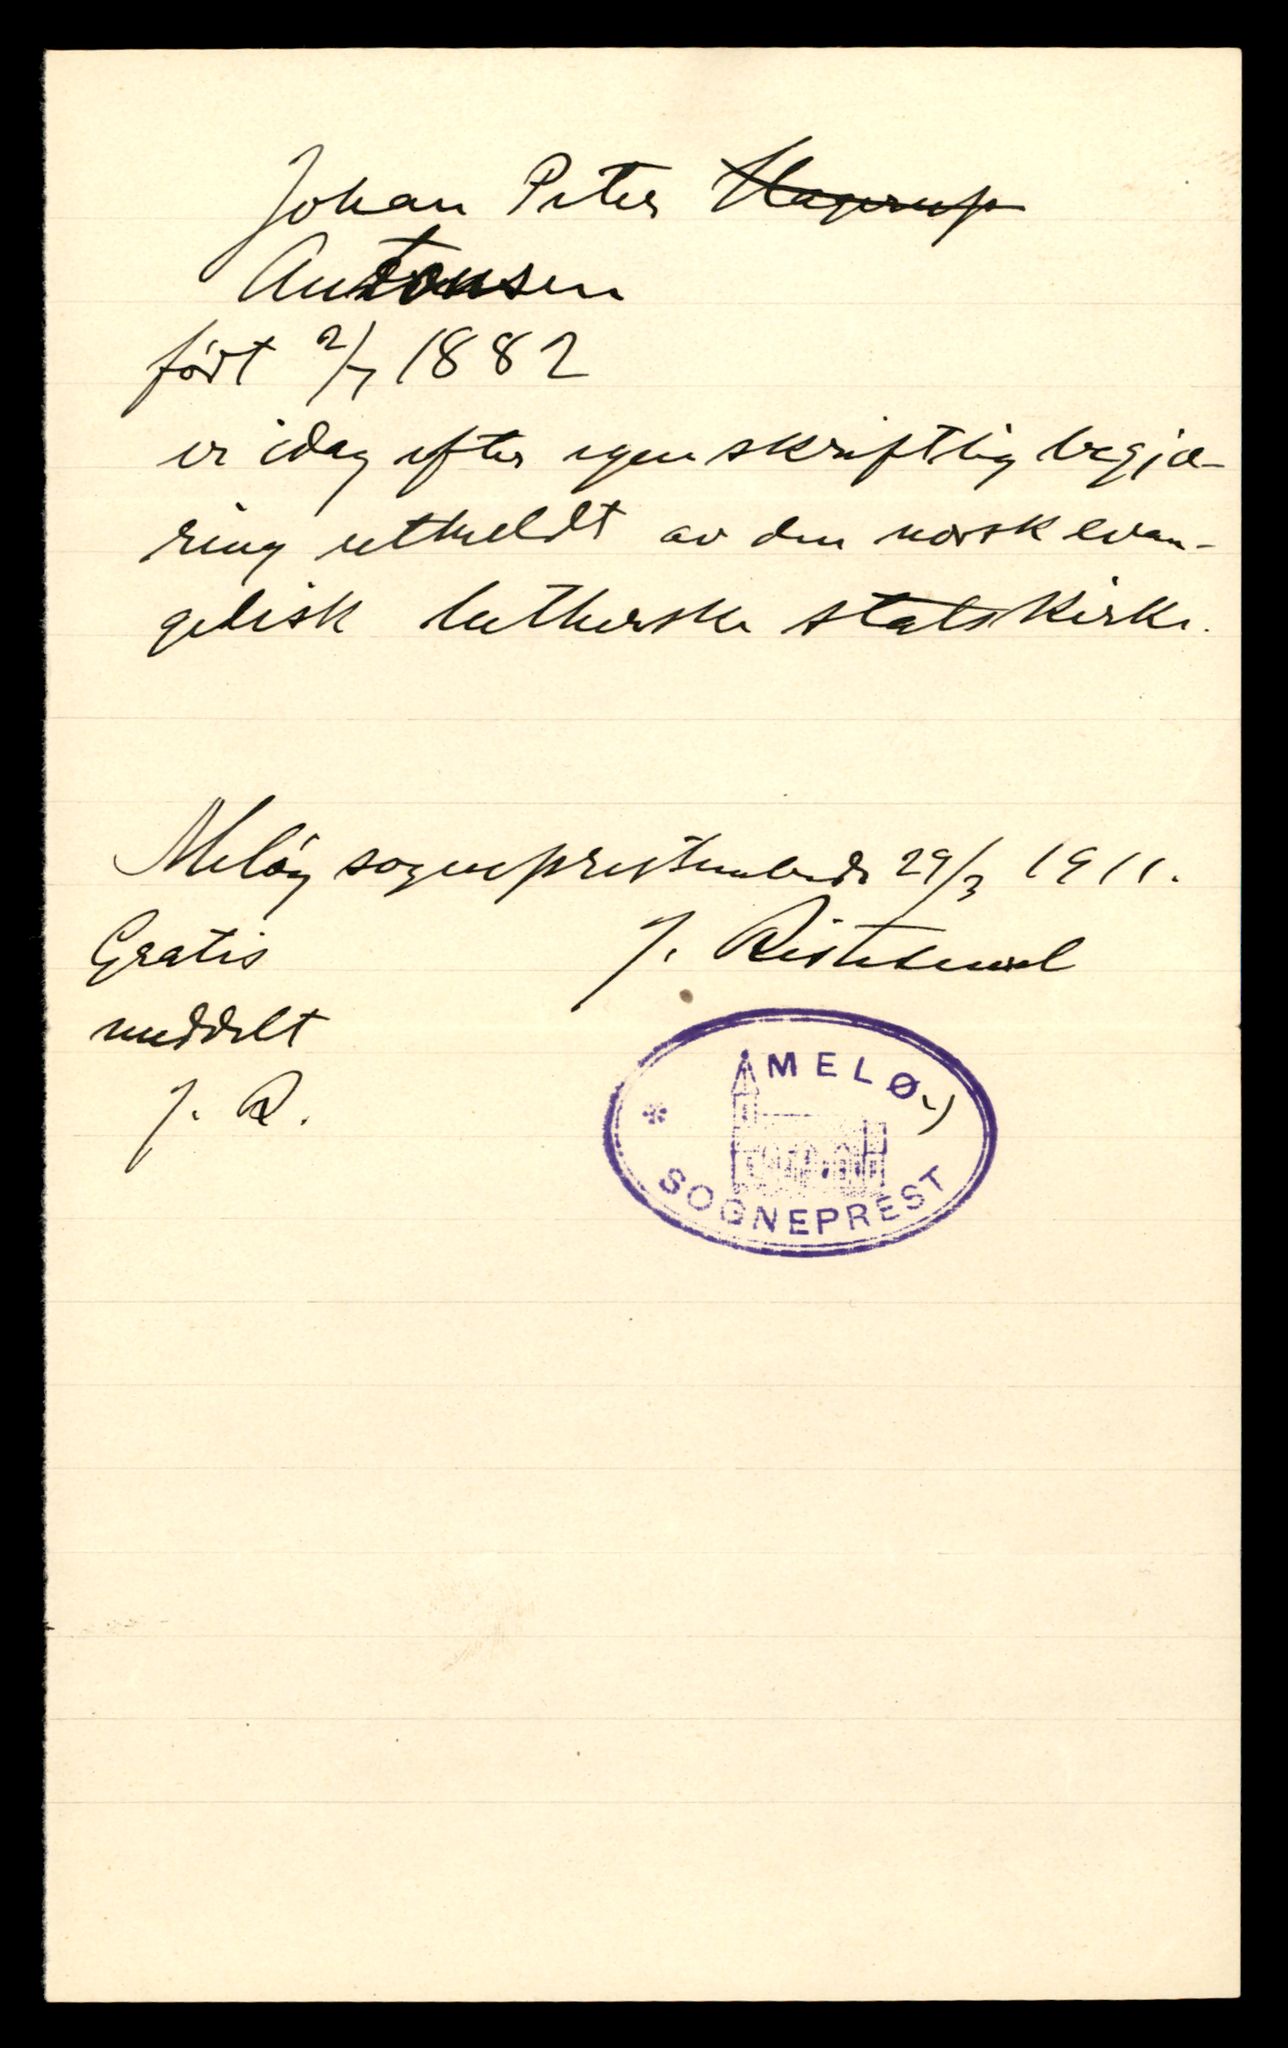 Johan Peter Hagerup
Antonsen
født 2/7 1882
er idag efter egen skriftlig begjæ-
ring utmeldt av den norsk evan-
gelisk lutherske statskirke.
Meløy sogneprestembede 29/3 1911.
Gratis
meddelt
J. R.
J.
MELØY
SOGNEPREST